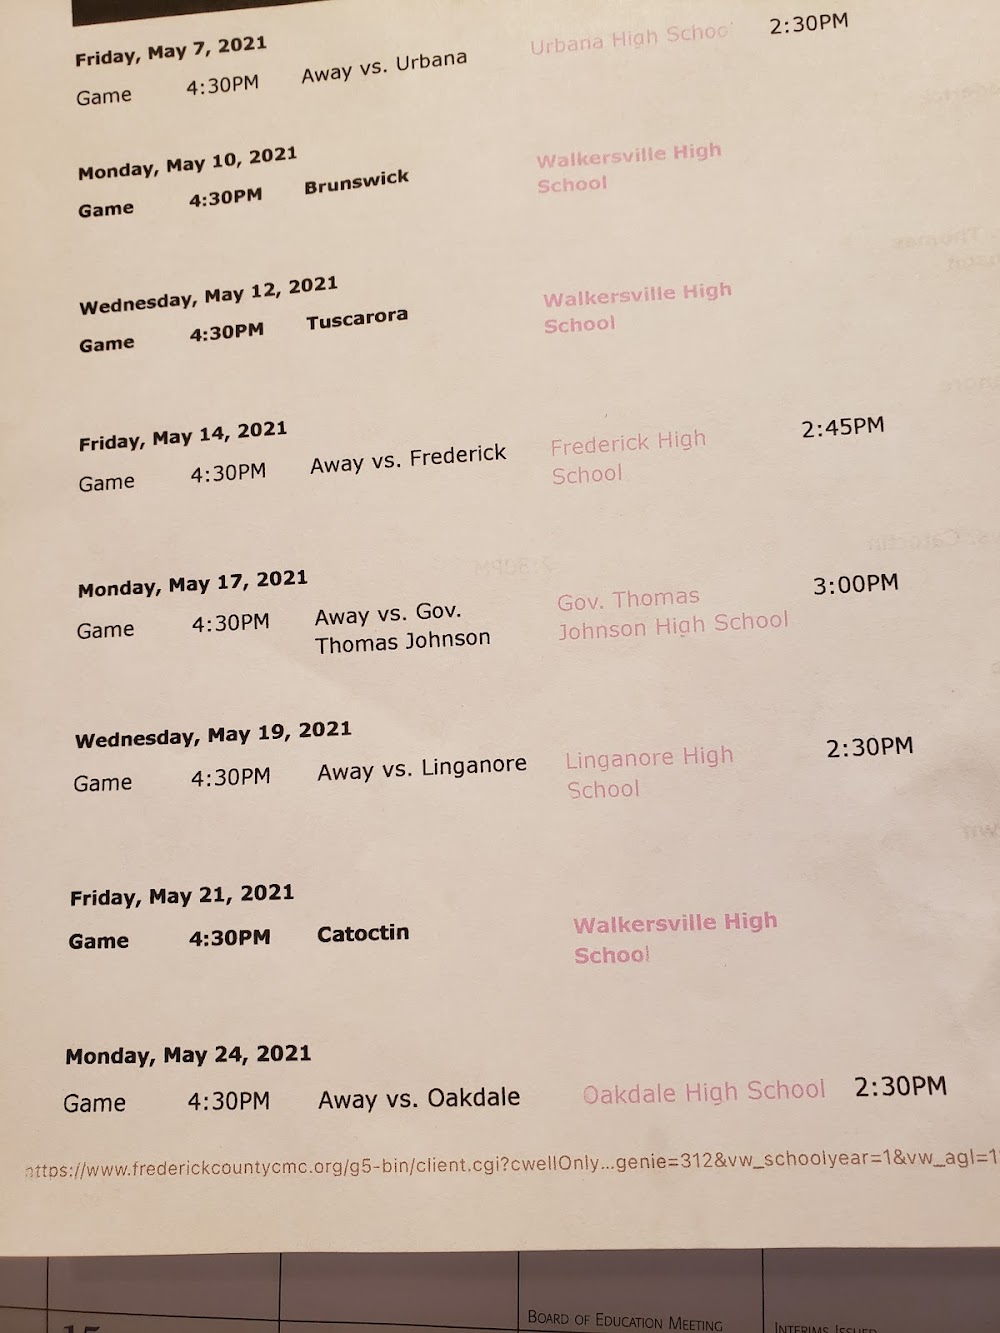 Friday, May 7, 2021
Game 4:30PM Away vs. Urbana Urbana High School 2:30PM
Monday, May 10, 2021
Game 4:30PM Brunswick Walkersville High
School
Wednesday, May 12, 2021
Game 4:30PM Tuscarora Walkersville High
School
Friday, May 14, 2021
Game 4:30PM Away vs. Frederick Frederick High 2:45PM
School
Monday, May 17, 2021
Game 4:30PM Away vs. Gov. Gov. Thomas 3:00PM
Thomas Johnson Johnson High School
Wednesday, May 19, 2021
Game 4:30PM Away vs. Linganore Linganore High 2:30PM
School
Friday, May 21, 2021
Game 4:30PM Catoctin Walkersville High
School
Monday, May 24, 2021
Game 4:30PM Away vs. Oakdale Oakdale High School 2:30PM
https://www.frederickcountycmc.org/g5-bin/client.cgi?cwellOnly...genie=312&vw_schoolyear=1&vw_agl=1
15
BOARD OF EDUCATION MEETING
INTERIMS ISSUED